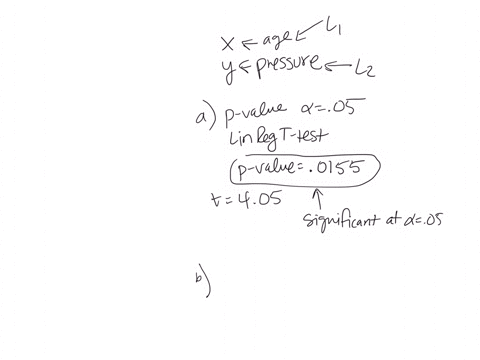 x ← age ← L1
y ← pressure ← L2
a) p-value α=.05
LinRegT-test
p-value=.0155
t=4.05
significant at α=.05
b)